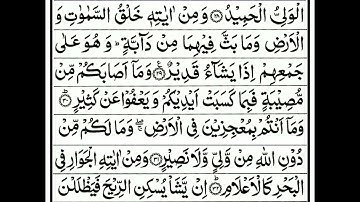 الۡوَلِیُّ الۡحَمِیۡدُ ﴿۲۸﴾ وَمِنۡ اٰیٰتِهٖ خَلۡقُ السَّمٰوٰتِ وَ
الۡاَرۡضِ وَمَا بَثَّ فِیۡهِمَا مِنۡ دَآبَّةٍ ؕ وَهُوَ عَلٰی
جَمۡعِهِمۡ اِذَا یَشَآءُ قَدِیۡرٌ ﴿۲۹﴾ وَمَاۤ اَصَابَکُمۡ مِّنۡ
مُّصِیۡبَةٍ فَبِمَا کَسَبَتۡ اَیۡدِیۡکُمۡ وَیَعۡفُوۡا عَنۡ کَثِیۡرٍ ﴿۳۰﴾
وَمَاۤ اَنۡتُمۡ بِمُعۡجِزِیۡنَ فِی الۡاَرۡضِ ۚ وَمَا لَکُمۡ مِّنۡ
دُوۡنِ اللّٰهِ مِنۡ وَّلِیٍّ وَّلَا نَصِیۡرٍ ﴿۳۱﴾ وَمِنۡ اٰیٰتِهِ الۡجَوَارِ فِی
الۡبَحۡرِ کَالۡاَعۡلَامِ ﴿۳۲﴾ اِنۡ یَّشَاۡ یُسۡکِنِ الرِّیۡحَ فَیَظۡلَلۡنَ